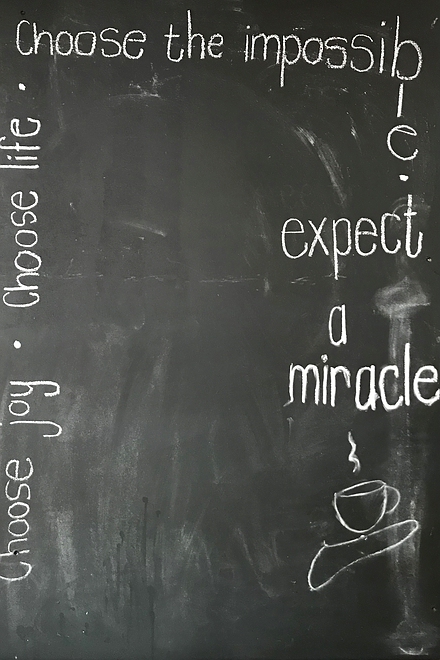 Choose the impossible •
expect
a
miracle
Choose joy • Choose life •